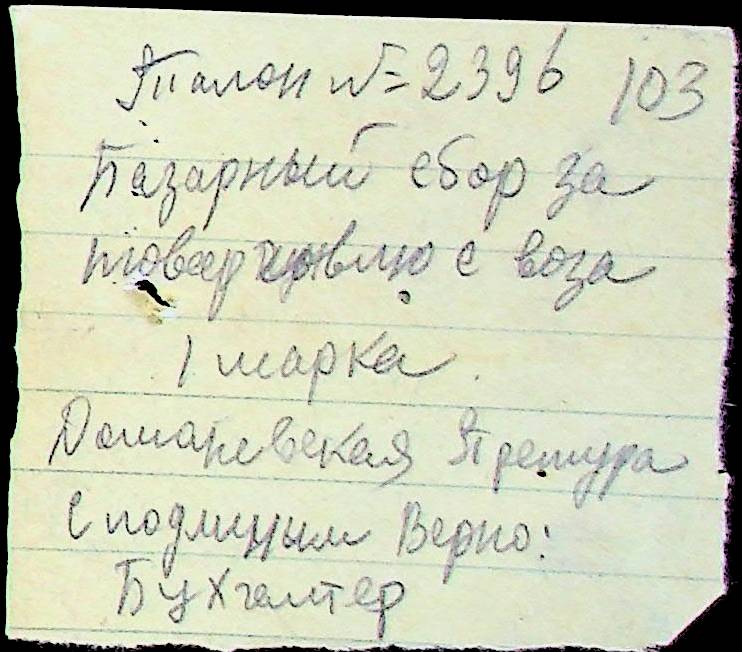 Талон № 2396 103
Базарный сбор за
товарговлю с воза
1 марка
Доманевская Претура
С подлиным Верно:
Бухгалтер